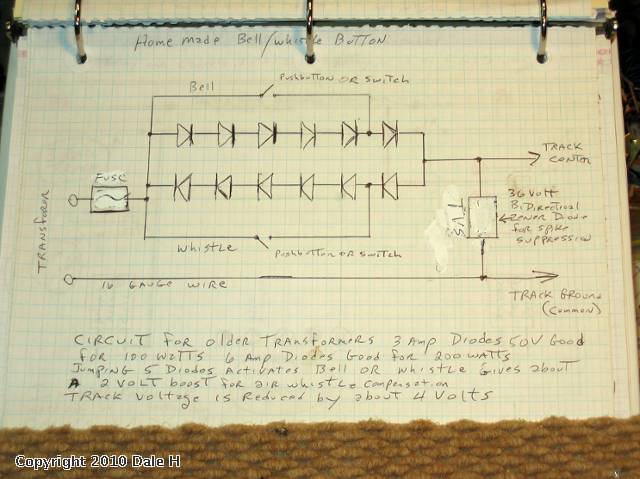 Home made Bell/whistle Button
Bell
Pushbutton OR Switch
FUSE
TRACK
CONTOR
TRANSFORER
36 Volt
BiDirectional
Zener Diode
for spike
suppression
TVS
whistle
Pushbutton OR Switch
16 GAUGE WIRE
TRACK Ground
(common)
CIRCUIT for older TRANSformers 3 Amp Diodes 50V Good
for 100 WATTS 6 Amp Diodes Good for 200 WATTS
Jumping 5 Diodes Activates Bell OR whistle Gives about
A 2 VOLT boost for air whistle compensation
TRACK Voltage is Reduced by about 4 Volts
Copyright 2010 Dale H